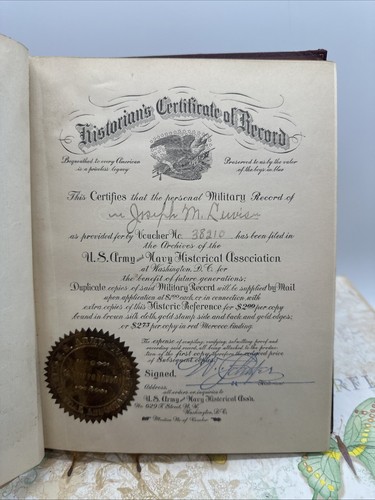 Historian's Certificate of Record
Bequeathed to every American
is a priceless legacy
Preserved to us by the valor
of the boys in blue
This Certifies that the personal Military Record of
Joseph M. Lewis
as provided for by Voucher Nr. 38210 has been filed in
the Archives of the
U.S. Army and Navy Historical Association
at Washington, D.C. for
the benefit of future generations;
Duplicate copies of said Military Record will be supplied by Mail
upon application at each, or in connection with
extra copies of this Historic Reference for per copy
found in brown silk cloth, gold stamp side and back and gold edges;
or per copy in red Morocco binding.
The expense of compiling, verifying, embellishing, proof and
recording said record, all being attached to the produc-
tion of the first copy, therefore the reduced price
of Subsequent copies.
Signed,
Address,
all orders or inquiries to
U.S. Army and Navy Historical Assn.
No. 629 F Street, N.W.
Washington, D.C.
Mention No. of Voucher